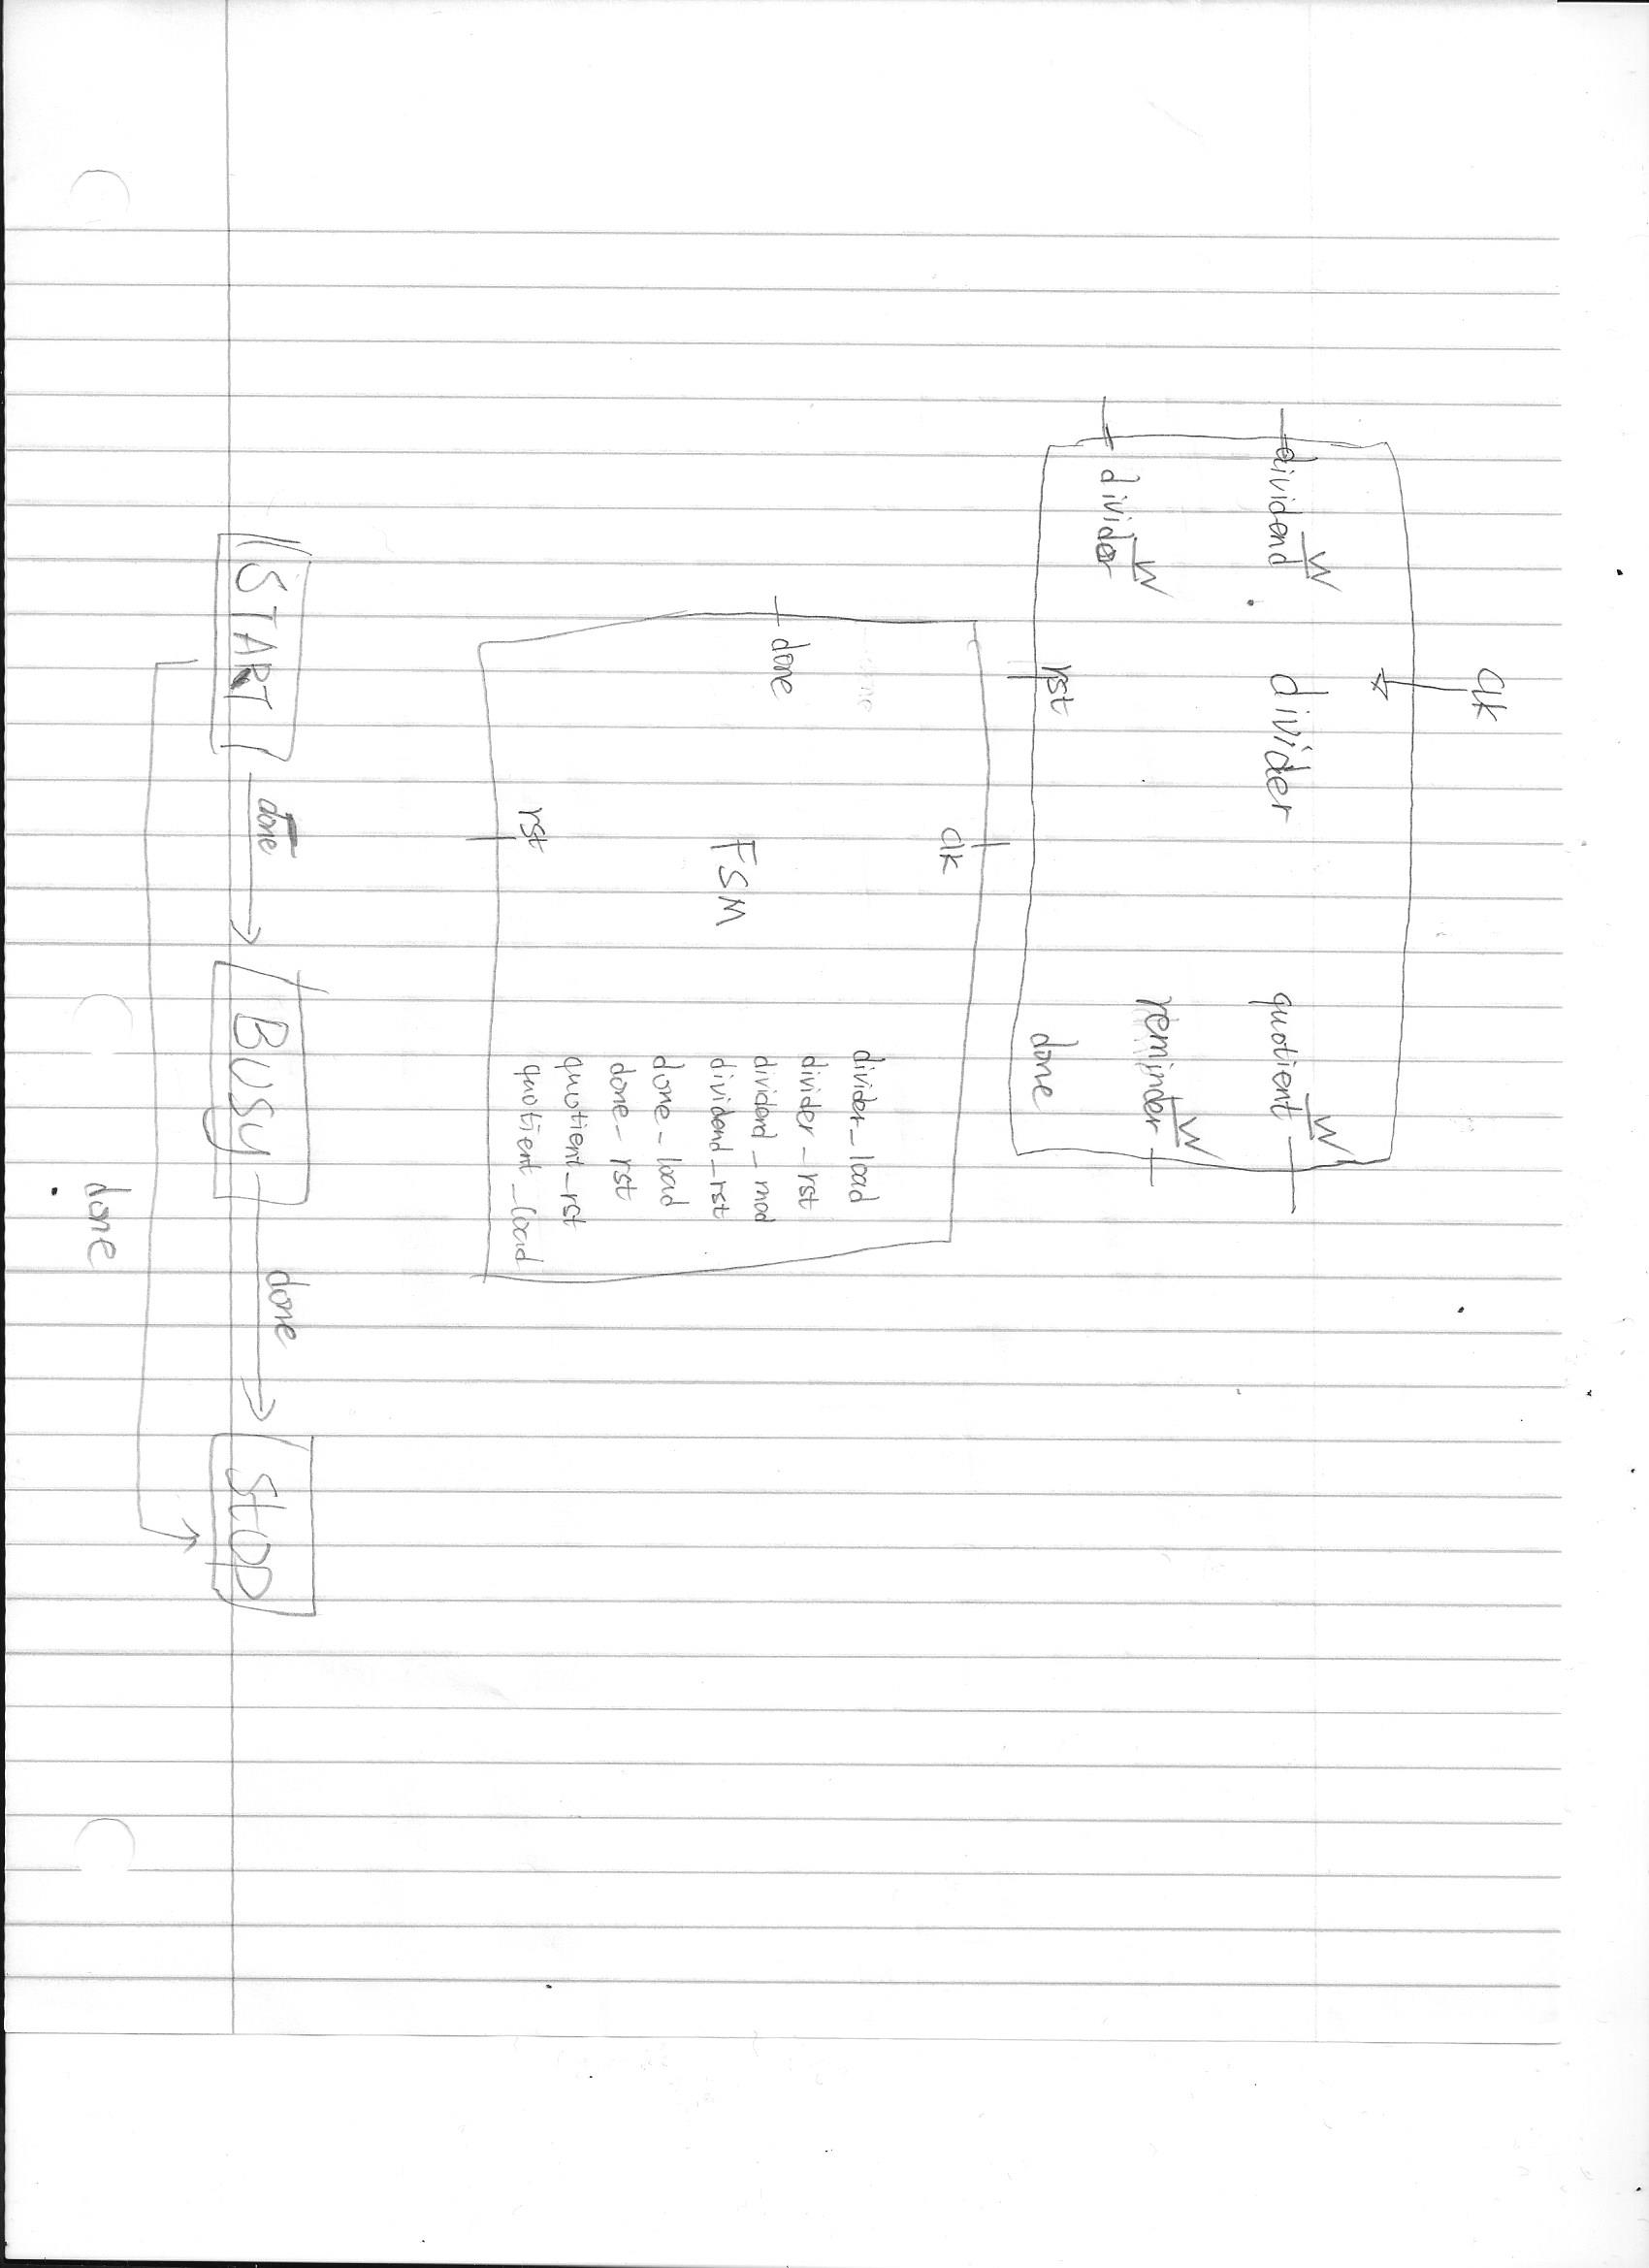 clk
dividend W
divider
quotient W
divider W
reminder W
rst
done
clk
done
FSM
divider_load
divider_rst
dividend_mod
dividend_rst
done_load
done_rst
quotient_rst
quotient_load
rst
START
done
BUSY
done
STOP
done